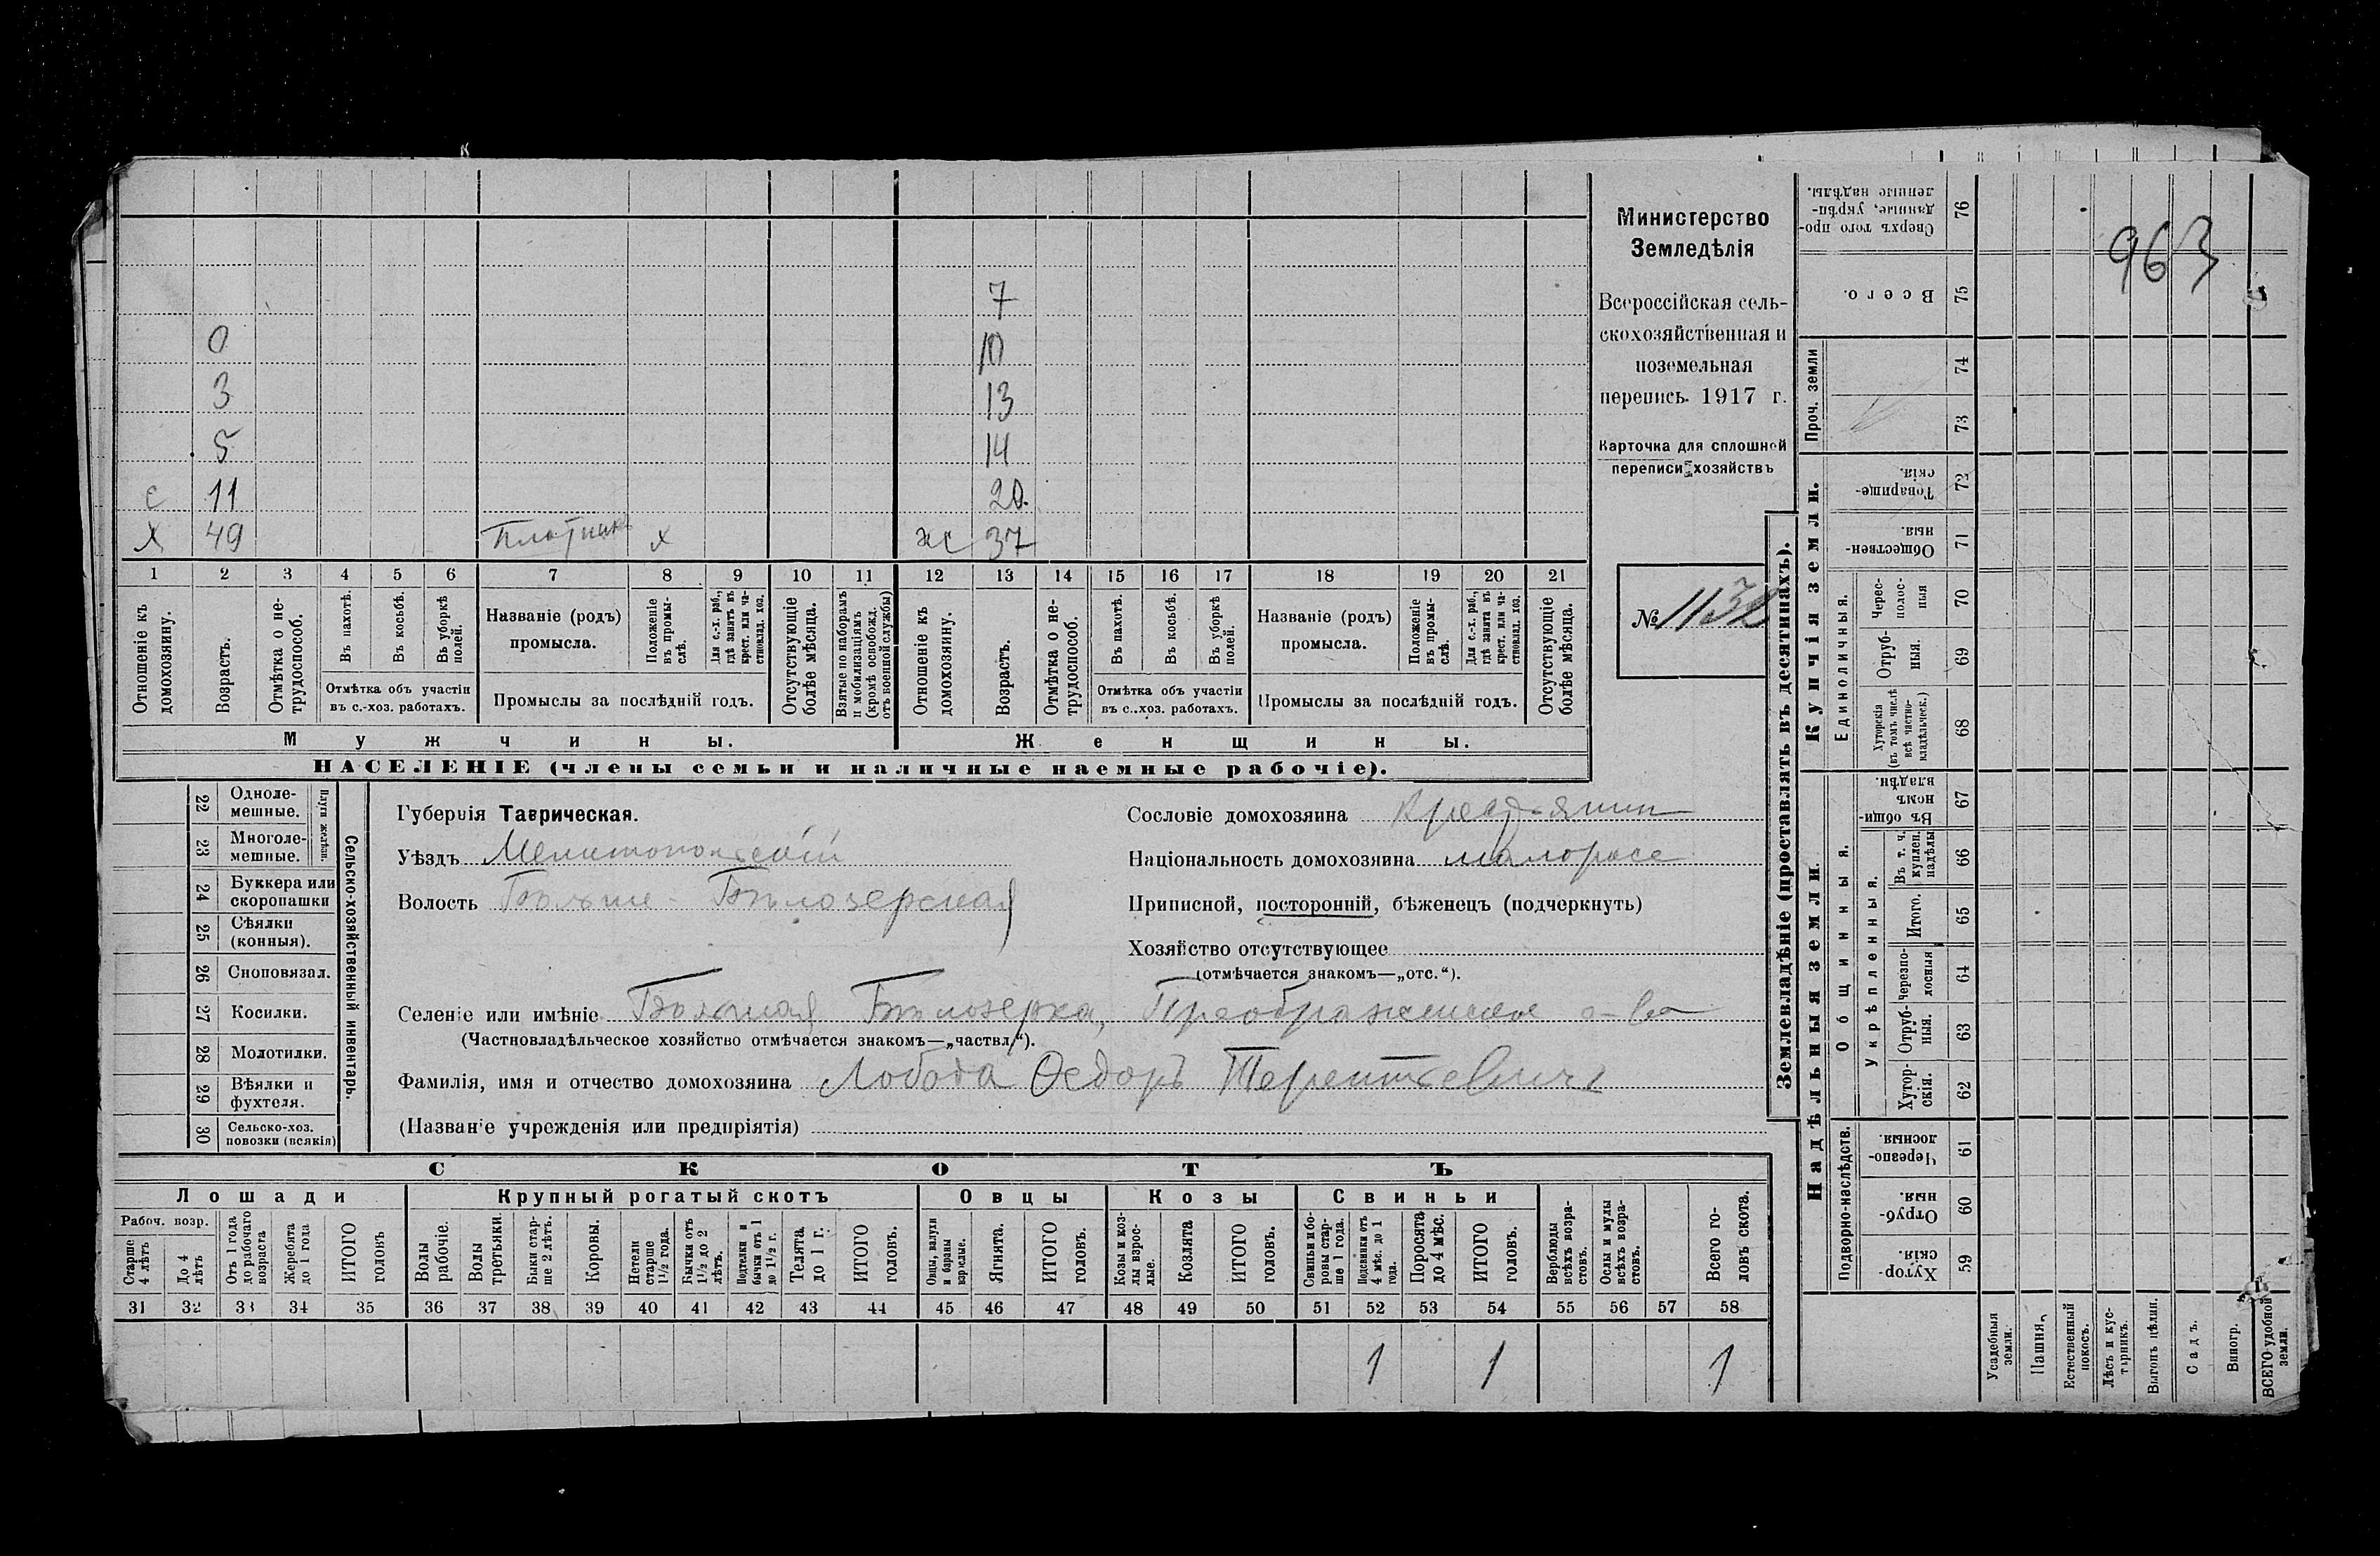 963
Министерство
Земледѣлія
Всероссійская сель-
скохозяйственная и
поземельная
перепись 1917 г.
Карточка для сплошной
переписи хозяйствъ
№ 1132
7
0 10
3 13
5 14
с 11 20
х 49 Плотникъ х ж 37
1 2 3 4 5 6 7 8 9 10 11 12 13 14 15 16 17 18 19 20 21
Отношеніе къ домохозяину.
Возрастъ.
Отмѣтка о не-трудоспособ.
Въ пахотѣ.
Въ косьбѣ.
Въ уборкѣ полей.
Отмѣтка объ участіи
въ с.-хоз. работахъ.
Названіе (родъ)
промысла.
Положеніе въ промы-слѣ.
Для с.-х. раб., гдѣ занятъ въ крест. или ча-стновлад. хоз.
Промыслы за послѣдній годъ.
Отсутствующіе болѣе мѣсяца.
Взятые по наборамъ и мобилизаціямъ (кромѣ освобожд. отъ военной службы)
Отношеніе къ домохозяину.
Возрастъ.
Отмѣтка о не-трудоспособ.
Въ пахотѣ.
Въ косьбѣ.
Въ уборкѣ полей.
Отмѣтка объ участіи
въ с.-хоз. работахъ.
Названіе (родъ)
промысла.
Положеніе въ промы-слѣ.
Для с.-х. раб., гдѣ занята въ крест. или ча-стновлад. хоз.
Промыслы за послѣдній годъ.
Отсутствующіе болѣе мѣсяца.
Мужчины. Женщины.
НАСЕЛЕНІЕ (члены семьи и наличные наемные рабочіе).
22 Одноле-мешные.
23 Многоле-мешные.
Плуги желѣзн.
24 Буккера или скоропашки
25 Сѣялки (конныя).
26 Сноповязал.
27 Косилки.
28 Молотилки.
29 Вѣялки и фухтеля.
30 Сельско-хоз. повозки (всякія)
Сельско-хозяйственный инвентарь.
Губернія Таврическая.
Уѣздъ Мелитопольскій
Волость Больше-Бѣлозерская
Селеніе или имѣніе Большая Бѣлозерка, Преображенское о-во
(Частновладѣльческое хозяйство отмѣчается знакомъ—„частвл.“).
Фамилія, имя и отчество домохозяина Лобода Ѳедоръ Терентьевичъ
(Названіе учрежденія или предпріятія)
Сословіе домохозяина крестьянин
Національность домохозяина малоросс
Приписной, посторонній, бѣженецъ (подчеркнуть)
Хозяйство отсутствующее
(отмѣчается знакомъ—„отс.“).
СКОТЪ
Лошади
Крупный рогатый скотъ
Овцы
Козы
Свиньи
Рабоч. возр.
Старше 4 лѣтъ
До 4 лѣтъ
Отъ 1 года до рабочаго возраста
Жеребята до 1 года
ИТОГО головъ
Волы рабочіе.
Волы третьяки.
Быки стар-ше 2 лѣтъ.
Коровы.
Нетели старше 1½ года.
Бычки отъ 1½ до 2 лѣтъ.
Подтелки и бычки отъ 1 до 1½ г.
Телята до 1 г.
ИТОГО головъ.
Овцы, валухи и бараны взрослые.
Ягнята.
ИТОГО головъ.
Козы и коз-лы взрос-лые.
Козлята
ИТОГО головъ.
Свиньи и бо-ровы стар-ше 1 года.
Подсвинки отъ 4 мѣс. до 1 года.
Поросята до 4 мѣс.
ИТОГО головъ.
Верблюды всѣхъ возра-стовъ.
Ослы и мулы всѣхъ возра-стовъ.
Всего го-ловъ скота.
31 32 33 34 35 36 37 38 39 40 41 42 43 44 45 46 47 48 49 50 51 52 53 54 55 56 57 58
1 1 1
Землевладѣніе (проставлять въ десятинахъ).
Надѣльныя земли.
Купчія земли.
Проч. земли
Подворно-наслѣдств.
Общинныя.
Укрѣпленныя.
Единоличныя.
Хутор-скія. 59
Отруб-ныя. 60
Черезпо-лосныя. 61
Хутор-скія. 62
Отруб-ныя. 63
Черезпо-лосныя 64
Итого. 65
Въ т. ч. куплен. надѣлы 66
Въ общин-номъ владѣн. 67
Хуторскія (въ томъ числѣ всѣ частно-владѣльческ.) 68
Отруб-ныя. 69
Черес-полос-ныя 70
Обществен-ныя 71
Товарище-скія. 72
73
74
Всего. 75
Сверхъ того про-данные, укрѣп-ленные надѣлы. 76
Усадебныя земли.
Пашня.
Естественный покосъ.
Лѣсъ и кус-тарникъ.
Выгонъ цѣлин.
Садъ.
Виногр.
ВСЕГО удобной земли.